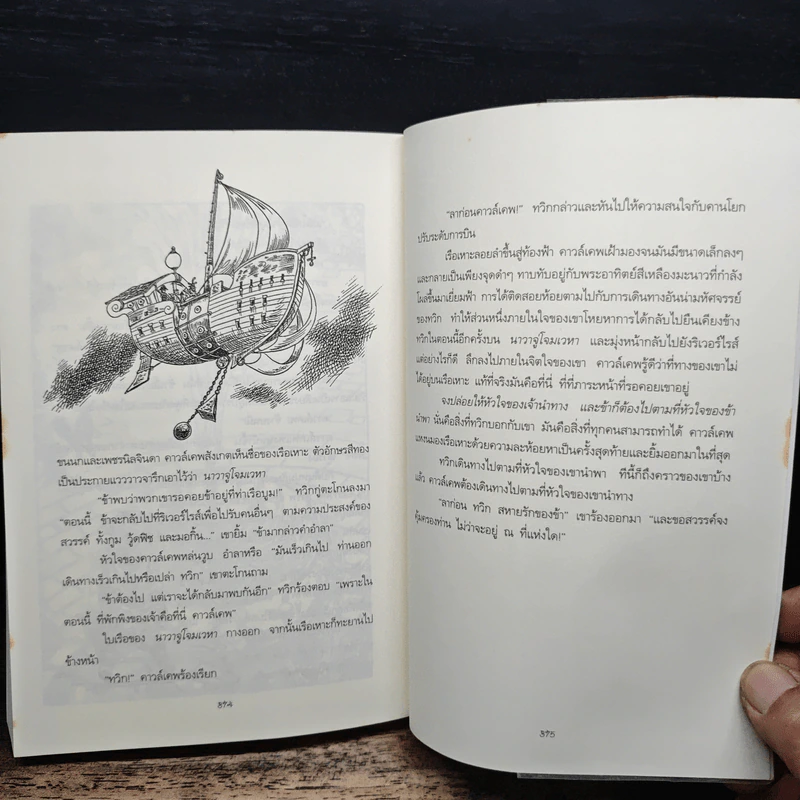 ขนนกและเพชรนิลจินดา คาวล์เคพสังเกตเห็นชื่อของเรือเหาะ ตัวอักษรสีทอง
เป็นประกายแวววาวจารึกเอาไว้ว่า นาวาจู่โจมเวหา
"ข้าพบว่าพวกเขารอคอยข้าอยู่ที่ท่าเรือบูม!" ทวิกกู่ตะโกนลงมา
"ตอนนี้ ข้าจะกลับไปที่ริเวอร์ไรส์เพื่อไปรับคนอื่นๆ ตามความประสงค์ของ
สวรรค์ ทั้งกูม วู้ดฟิช และมอกิ้น..." เขายิ้ม "ข้ามากล่าวคำอำลา"
หัวใจของคาวล์เคพหล่นวูบ อำลาหรือ "มันเร็วเกินไป ท่านออก
เดินทางเร็วเกินไปหรือเปล่า ทวิก" เขาตะโกนถาม
"ข้าต้องไป แต่เราจะได้กลับมาพบกันอีก" ทวิกร้องตอบ "เพราะใน
ตอนนี้ ที่พักพิงของเจ้าคือที่นี่ คาวล์เคพ"
ใบเรือของ นาวาจู่โจมเวหา กางออก จากนั้นเรือเหาะก็ทะยานไป
ข้างหน้า
"ทวิก!" คาวล์เคพร้องเรียก
374
"ลาก่อนคาวล์เคพ!" ทวิกกล่าวและหันไปให้ความสนใจกับคานโยก
ปรับระดับการบิน
เรือเหาะลอยลำขึ้นสู่ท้องฟ้า คาวล์เคพเฝ้ามองจนมันมีขนาดเล็กลงๆ
และกลายเป็นเพียงจุดดำๆ ทาบทับอยู่กับพระอาทิตย์สีเหลืองมะนาวที่กำลัง
โผล่ขึ้นมาเยี่ยมฟ้า การได้ติดสอยห้อยตามไปกับการเดินทางอันน่ามหัศจรรย์
ของทวิก ทำให้ส่วนหนึ่งภายในใจของเขาโหยหาการได้กลับไปยืนเคียงข้าง
ทวิกในตอนนี้อีกครั้งบน นาวาจู่โจมเวหา และมุ่งหน้ากลับไปยังริเวอร์ไรส์
แต่อย่างไรก็ดี ลึกลงไปภายในจิตใจของเขา คาวล์เคพรู้ดีว่าที่ทางของเขาไม่
ได้อยู่บนเรือเหาะ แท้ที่จริงมันคือที่นี่ ที่ที่ภาระหน้าที่รอคอยเขาอยู่
จงปล่อยให้หัวใจของเจ้านำทาง และข้าก็ต้องไปตามที่หัวใจของข้า
นำพา นั่นคือสิ่งที่ทวิกบอกกับเขา มันคือสิ่งที่ทุกคนสามารถทำได้ คาวล์เคพ
แหงนมองเรือเหาะด้วยความละห้อยหาเป็นครั้งสุดท้ายและยิ้มออกมาในที่สุด
ทวิกเดินทางไปตามที่หัวใจของเขานำพา ทีนี้ก็ถึงคราวของเขาบ้าง
แล้ว คาวล์เคพต้องเดินทางไปตามที่หัวใจของเขานำทาง
"ลาก่อน ทวิก สหายรักของข้า" เขาร้องออกมา "และขอสวรรค์จง
คุ้มครองท่าน ไม่ว่าจะอยู่ ณ ที่แห่งใด!"
375